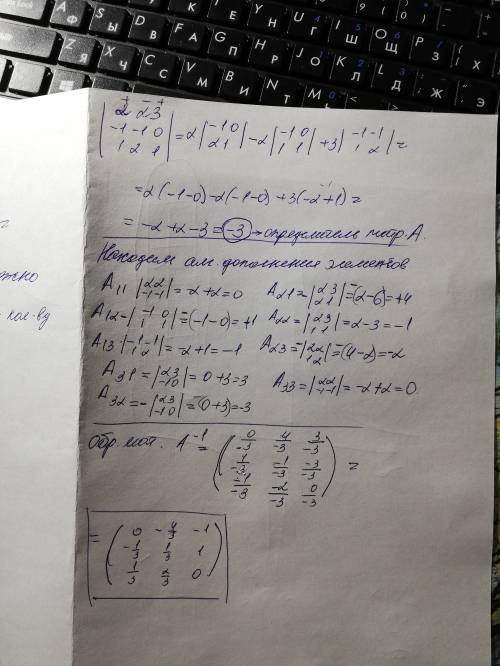 + - +
2 2 3
|-1 -1 0| = 2|-1 0| - 2|-1 0| + 3|-1 -1| =
1 2 1 2 1 1 1 1 2
= 2(-1-0) - 2(-1-0) + 3(-2+1) =
= -2+2-3 = (-3) → определитель матр. А.
Находим ал. дополнения элементов
A11 |22 -1-1| = -2+2=0 A21 = -|23 21| = -(2-6) = +4
A12 - |-1 0 1 1| = -(-1-0) = +1 A22 = |23 11| = 2-3 = -1
A13 |-1-1 1 2| = -2+1 = -1 A23 = -|22 12| = -(4-2) = -2
A31 = |23 -10| = 0+3=3 A33 = |22 -1-1| = -2+2=0
A32 = -|23 -10| = -(0+3) = -3
Обр. мат. A⁻¹ = (0/-3 4/-3 3/-3
1/-3 -1/-3 -3/-3
-1/-3 -2/-3 0/-3) =
= (0 -4/3 -1
-1/3 1/3 1
1/3 2/3 0)